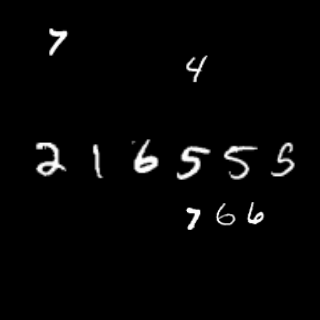 7
4
216555
766